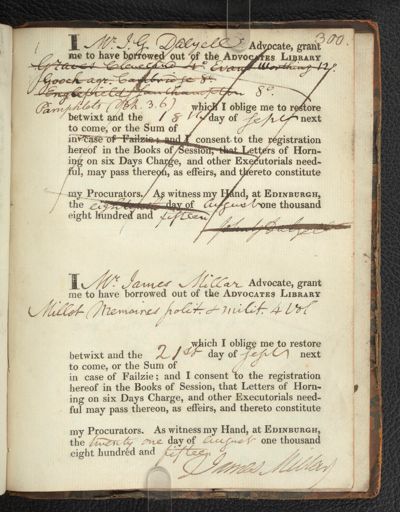 300.
I Mr. J. G. Dalyell Advocate, grant
me to have borrowed out of the ADVOCATES LIBRARY
Graves Cleveland 4o Evans Worthing 12o
Gooch agr. Cambridge 8o
Englefield Southampton 8o.
Pamphlets (3.6) which I oblige me to restore
betwixt and the 18th day of Septr next
to come, or the Sum of
in case of Failzie; and I consent to the registration
hereof in the Books of Session, that Letters of Horn-
ing on six Days Charge, and other Executorials need-
ful, may pass thereon, as effeirs, and thereto constitute
my Procurators. As witness my Hand, at EDINBURGH,
the eighteenth day of August one thousand
eight hundred and fifteen
John G Dalyell
I Mr. James Millar Advocate, grant
me to have borrowed out of the ADVOCATES LIBRARY
Millot Memoires polit. & milit. 4 Vol
which I oblige me to restore
betwixt and the 21st day of Septr next
to come, or the Sum of
in case of Failzie; and I consent to the registration
hereof in the Books of Session, that Letters of Horn-
ing on six Days Charge, and other Executorials need-
ful may pass thereon, as effeirs, and thereto constitute
my Procurators. As witness my Hand, at EDINBURGH,
the twenty one day of August one thousand
eight hundred and fifteen
James Millar